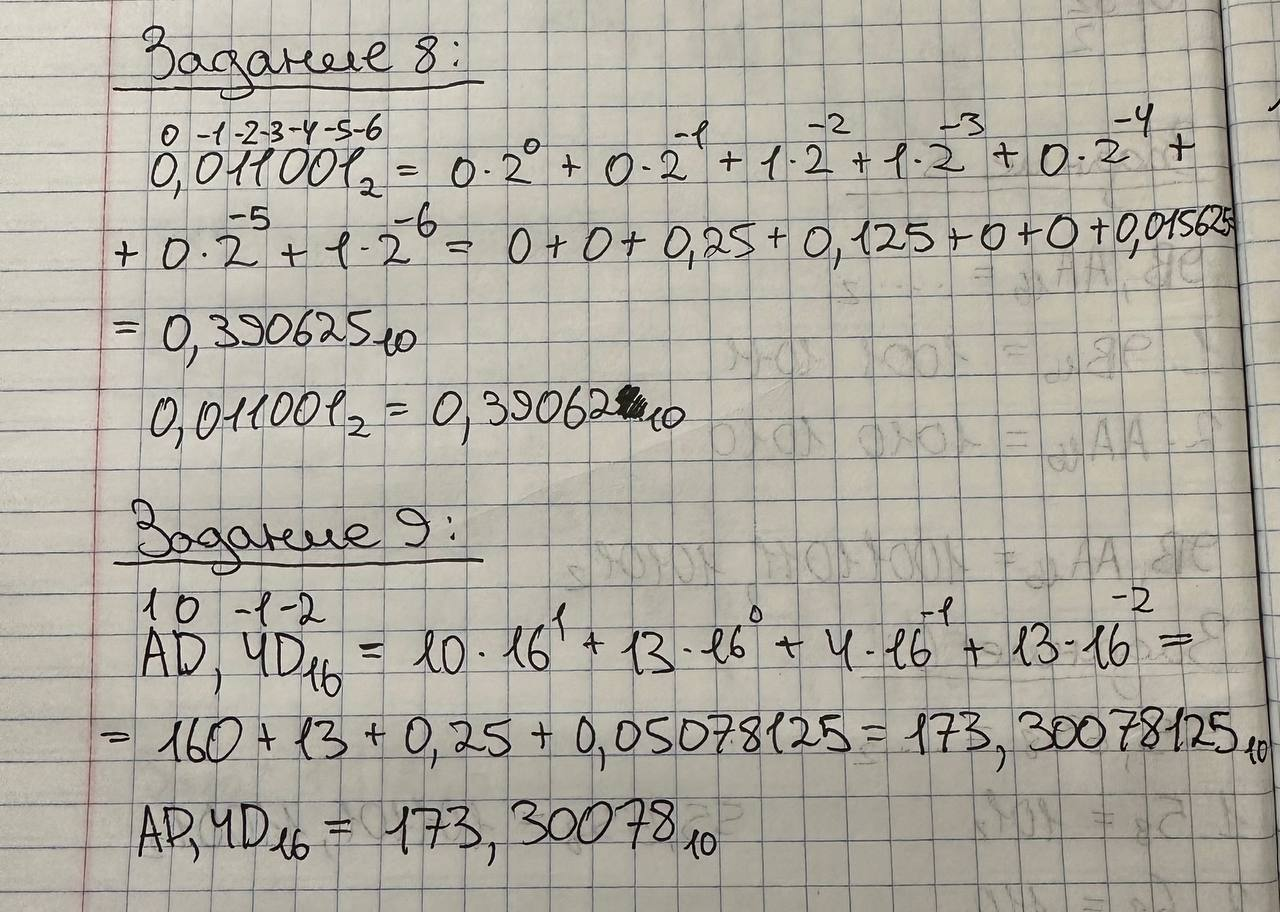 Задание 8:
0 -1 -2 -3 -4 -5 -6
0,011001₂ = 0·2⁰ + 0·2⁻¹ + 1·2⁻² + 1·2⁻³ + 0·2⁻⁴ +
+ 0·2⁻⁵ + 1·2⁻⁶ = 0 + 0 + 0,25 + 0,125 + 0 + 0 + 0,015625
= 0,390625₁₀
0,011001₂ = 0,39062₁₀
Задание 9:
1 0 -1 -2
AD,4D₁₆ = 10·16¹ + 13·16⁰ + 4·16⁻¹ + 13·16⁻² =
= 160 + 13 + 0,25 + 0,05078125 = 173,30078125₁₀
AD,4D₁₆ = 173,30078₁₀